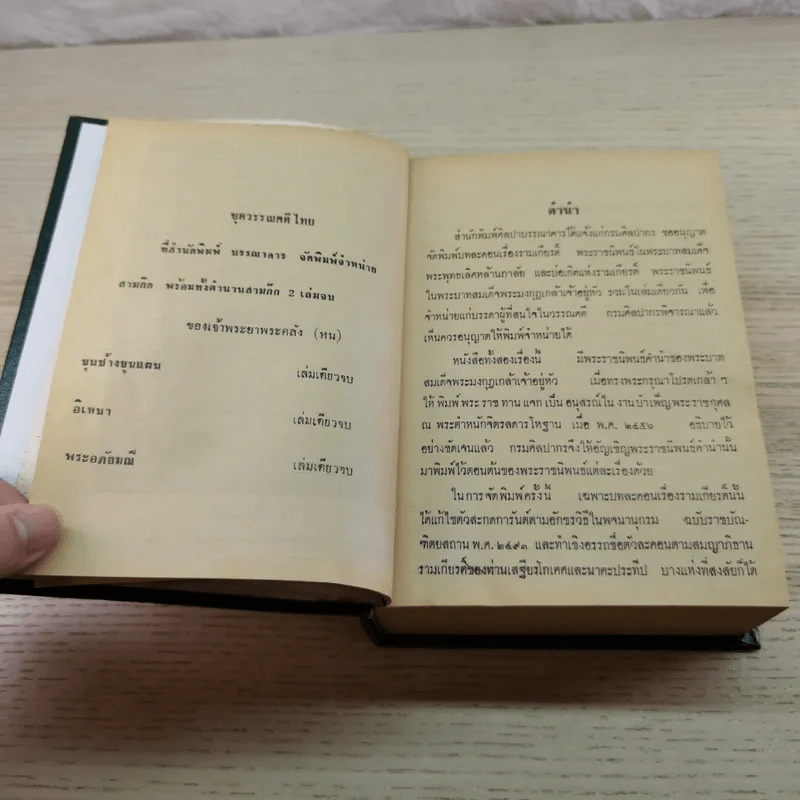 ชุดวรรณคดีไทย
ที่สำนักพิมพ์ บรรณาคาร จัดพิมพ์จำหน่าย
สามก๊ก พร้อมทั้งตำนานสามก๊ก 2 เล่มจบ
ของเจ้าพระยาพระคลัง (หน)
ขุนช้างขุนแผน เล่มเดียวจบ
อิเหนา เล่มเดียวจบ
พระอภัยมณี เล่มเดียวจบ
คำนำ
สำนักพิมพ์ศิลปาบรรณาคารได้แจ้งแก่กรมศิลปากร ขออนุญาต
จัดพิมพ์บทละคอนเรื่องรามเกียรติ์ พระราชนิพนธ์ในพระบาทสมเด็จ
พระพุทธเลิศหล้านภาลัย และบ่อเกิดแห่งรามเกียรติ์ พระราชนิพนธ์
ในพระบาทสมเด็จพระมงกุฎเกล้าเจ้าอยู่หัว รวมในเล่มเดียวกัน เพื่อ
จำหน่ายแก่บรรดาผู้ที่สนใจในวรรณคดี กรมศิลปากรพิจารณาแล้ว
เห็นควรอนุญาตให้พิมพ์จำหน่ายได้
หนังสือทั้งสองเรื่องนี้ มีพระราชนิพนธ์คำนำของพระบาท
สมเด็จพระมงกุฎเกล้าเจ้าอยู่หัว เมื่อทรงพระกรุณาโปรดเกล้า ฯ
ให้ พิมพ์ พระ ราช ทาน แจก เป็น อนุสรณ์ ใน งาน บำเพ็ญ พระราชกุศล
ณ พระตำหนักจิตรลดารโหฐาน เมื่อ พ.ศ. ๒๔๕๖ อธิบายไว้
อย่างชัดเจนแล้ว กรมศิลปากรจึงให้อัญเชิญพระราชนิพนธ์คำนำนั้น
มาพิมพ์ไว้ตอนต้นของพระราชนิพนธ์แต่ละเรื่องด้วย
ในการจัดพิมพ์ครั้งนี้ เฉพาะบทละคอนเรื่องรามเกียรติ์นั้น
ได้แก้ไขตัวสะกดการันต์ตามอักขรวิธีในพจนานุกรม ฉบับราชบัณ-
ฑิตยสถาน พ.ศ. ๒๔๙๓ และทำเชิงอรรถชื่อตัวละคอนตามสมญาภิธาน
รามเกียรติ์ของท่านเสฐียรโกเศศและนาคะประทีป บางแห่งที่สงสัยก็ได้